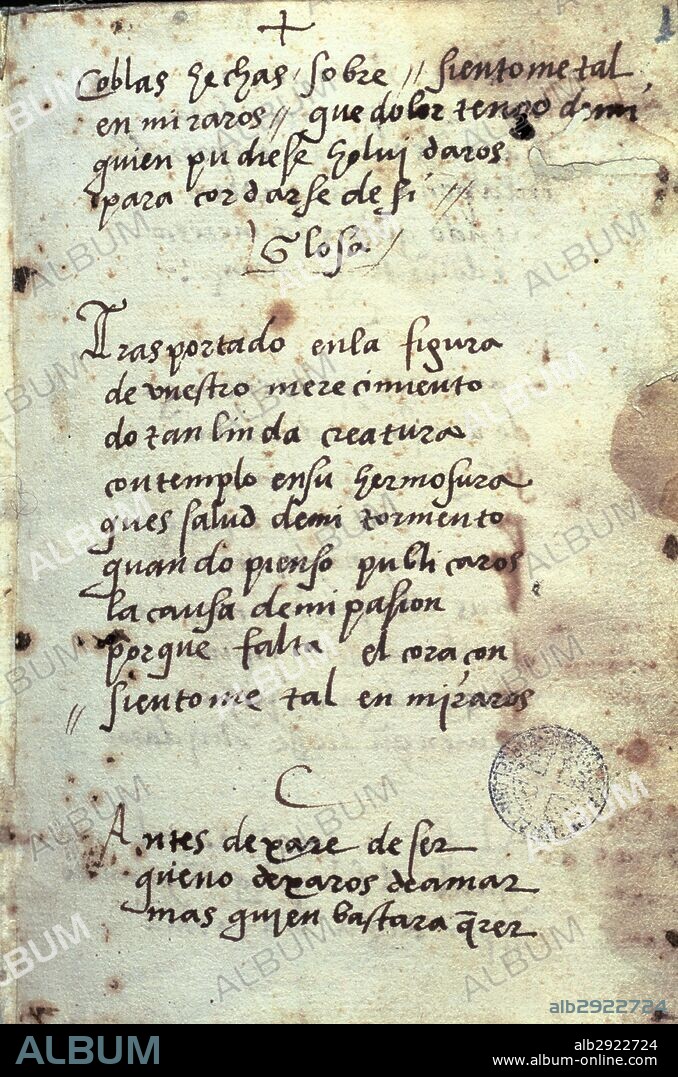 1
Coblas hechas sobre // sientome tal
en miraros // que dolor tengo demi
quien pudiese holuidaros
para cordarse desi //
Glosa
Trasportado enla figura
de vuestro merecimiento
do tan linda creatura
contemplo ensu hermosura
ques salud demi tormento
quando pienso publicaros
la causa demi pasion
porque falta el coraçon
// sientome tal en miraros
C
Antes dexare de ser
queno dexaros deamar
mas quien bastara q̄rer
alb2922724
ALBUM
alb2922724
www.album-online.com